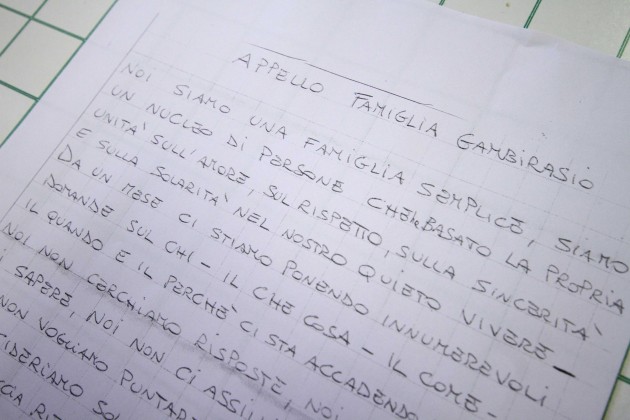 APPELLO FAMIGLIA GAMBIRASIO
NOI SIAMO UNA FAMIGLIA SEMPLICE, SIAMO
UN NUCLEO DI PERSONE CHE HA BASATO LA PROPRIA
UNITA' SULL'AMORE, SUL RISPETTO, SULLA SINCERITA'
E SULLA SOLARITA' NEL NOSTRO QUIETO VIVERE -
DA UN MESE CI STIAMO PONENDO INNUMEREVOLI
DOMANDE SUL CHI - IL CHE COSA - IL COME -
IL QUANDO E IL PERCHE' CI STA ACCADENDO
NOI NON CERCHIAMO RISPOSTE, NOI
SAPERE, NOI NON CI
NON VOGLIAMO